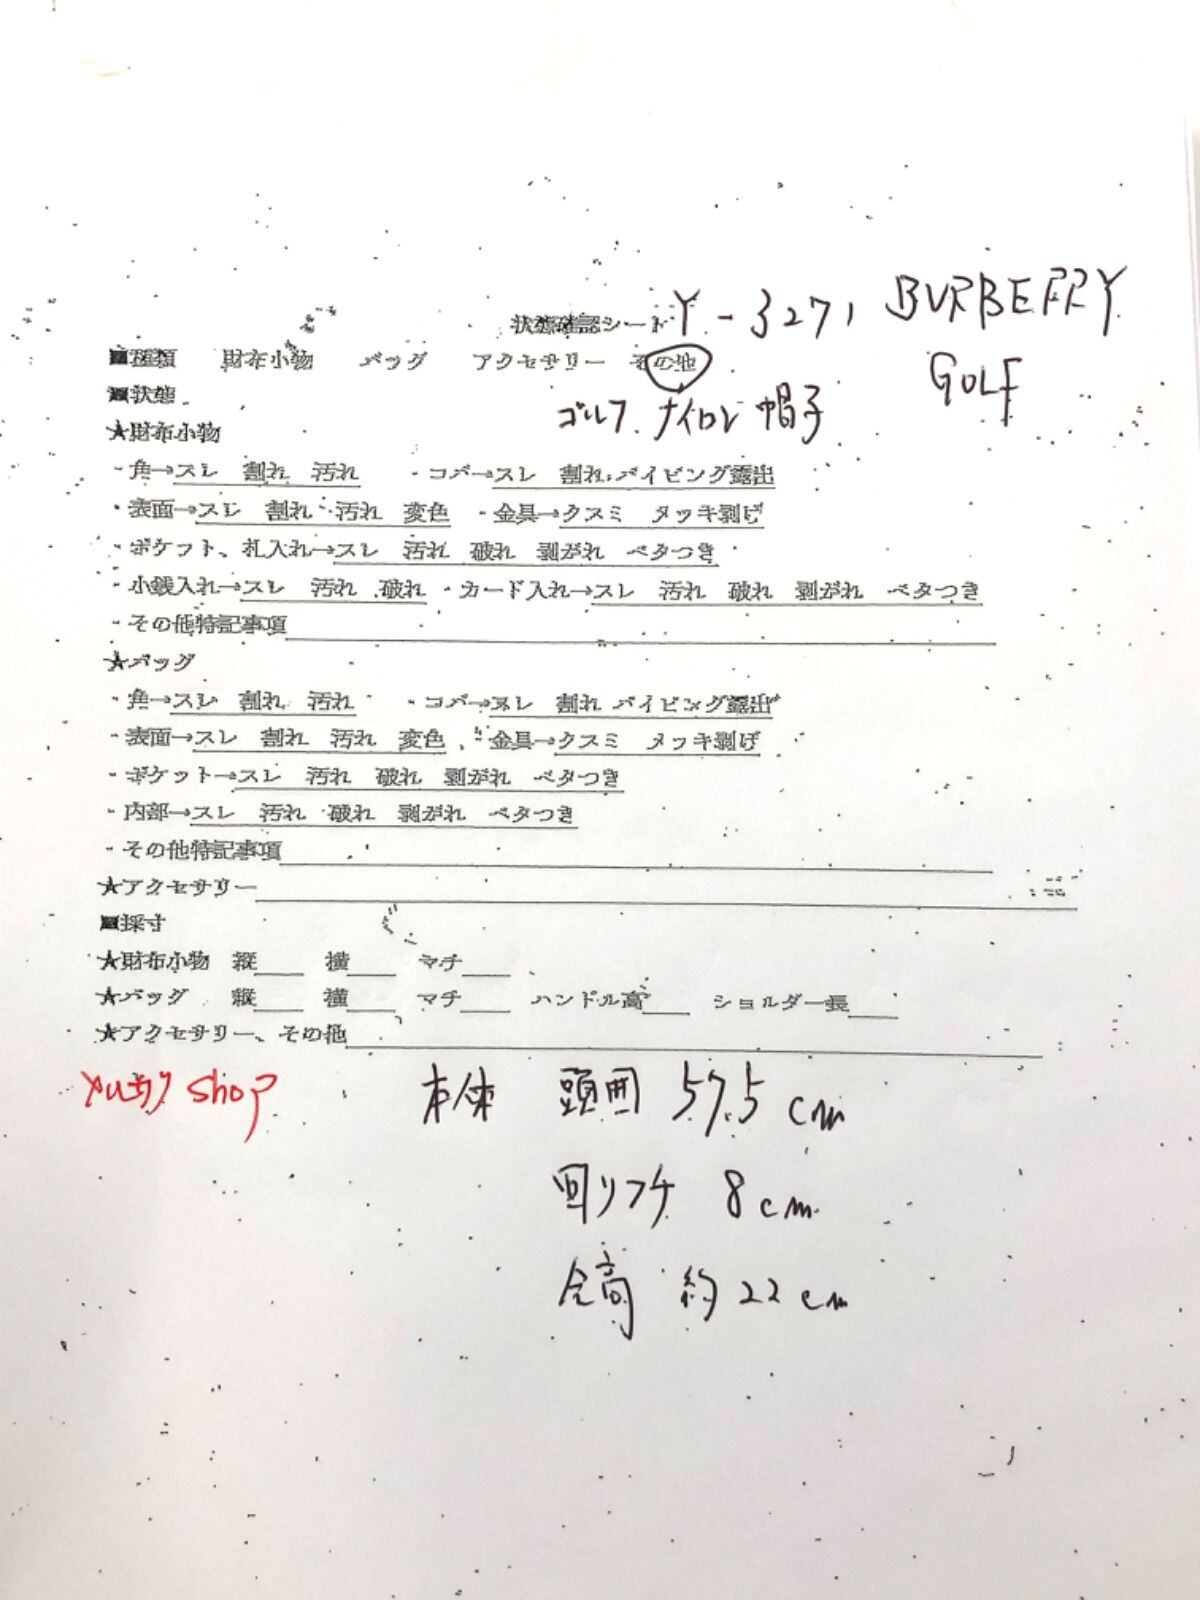 状態確認シート Y-3271 BURBERRY
■種類 財布小物 バッグ アクセサリー その他 GOLF
■状態 ゴルフ ナイロン 帽子
★財布小物
・角→スレ 割れ 汚れ ・コバ→スレ 割れ パイピング露出
・表面→スレ 割れ 汚れ 変色 ・金具→クスミ メッキ剥げ
・ポケット、札入れ→スレ 汚れ 破れ 剥がれ ベタつき
・小銭入れ→スレ 汚れ 破れ ・カード入れ→スレ 汚れ 破れ 剥がれ ベタつき
・その他特記事項
★バッグ
・角→スレ 割れ 汚れ ・コバ→スレ 割れ パイピング露出
・表面→スレ 割れ 汚れ 変色 ・金具→クスミ メッキ剥げ
・ポケット→スレ 汚れ 破れ 剥がれ ベタつき
・内部→スレ 汚れ 破れ 剥がれ ベタつき
・その他特記事項
★アクセサリー
■採寸
★財布小物 縦 横 マチ
★バッグ 縦 横 マチ ハンドル高 ショルダー長
★アクセサリー、その他
shop 本体 頭囲 57.5cm
回りフチ 8cm
全高 約22cm